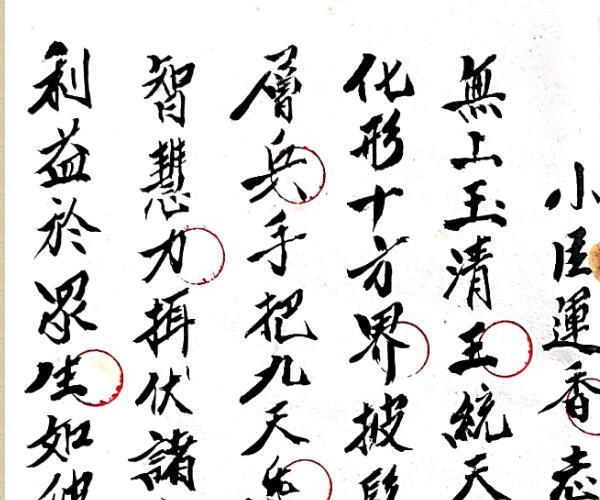 小臣運香志
無上玉清王統天
化形十方界披髮
層兵手把九天
智慧力揖伏諸
利益於眾生如